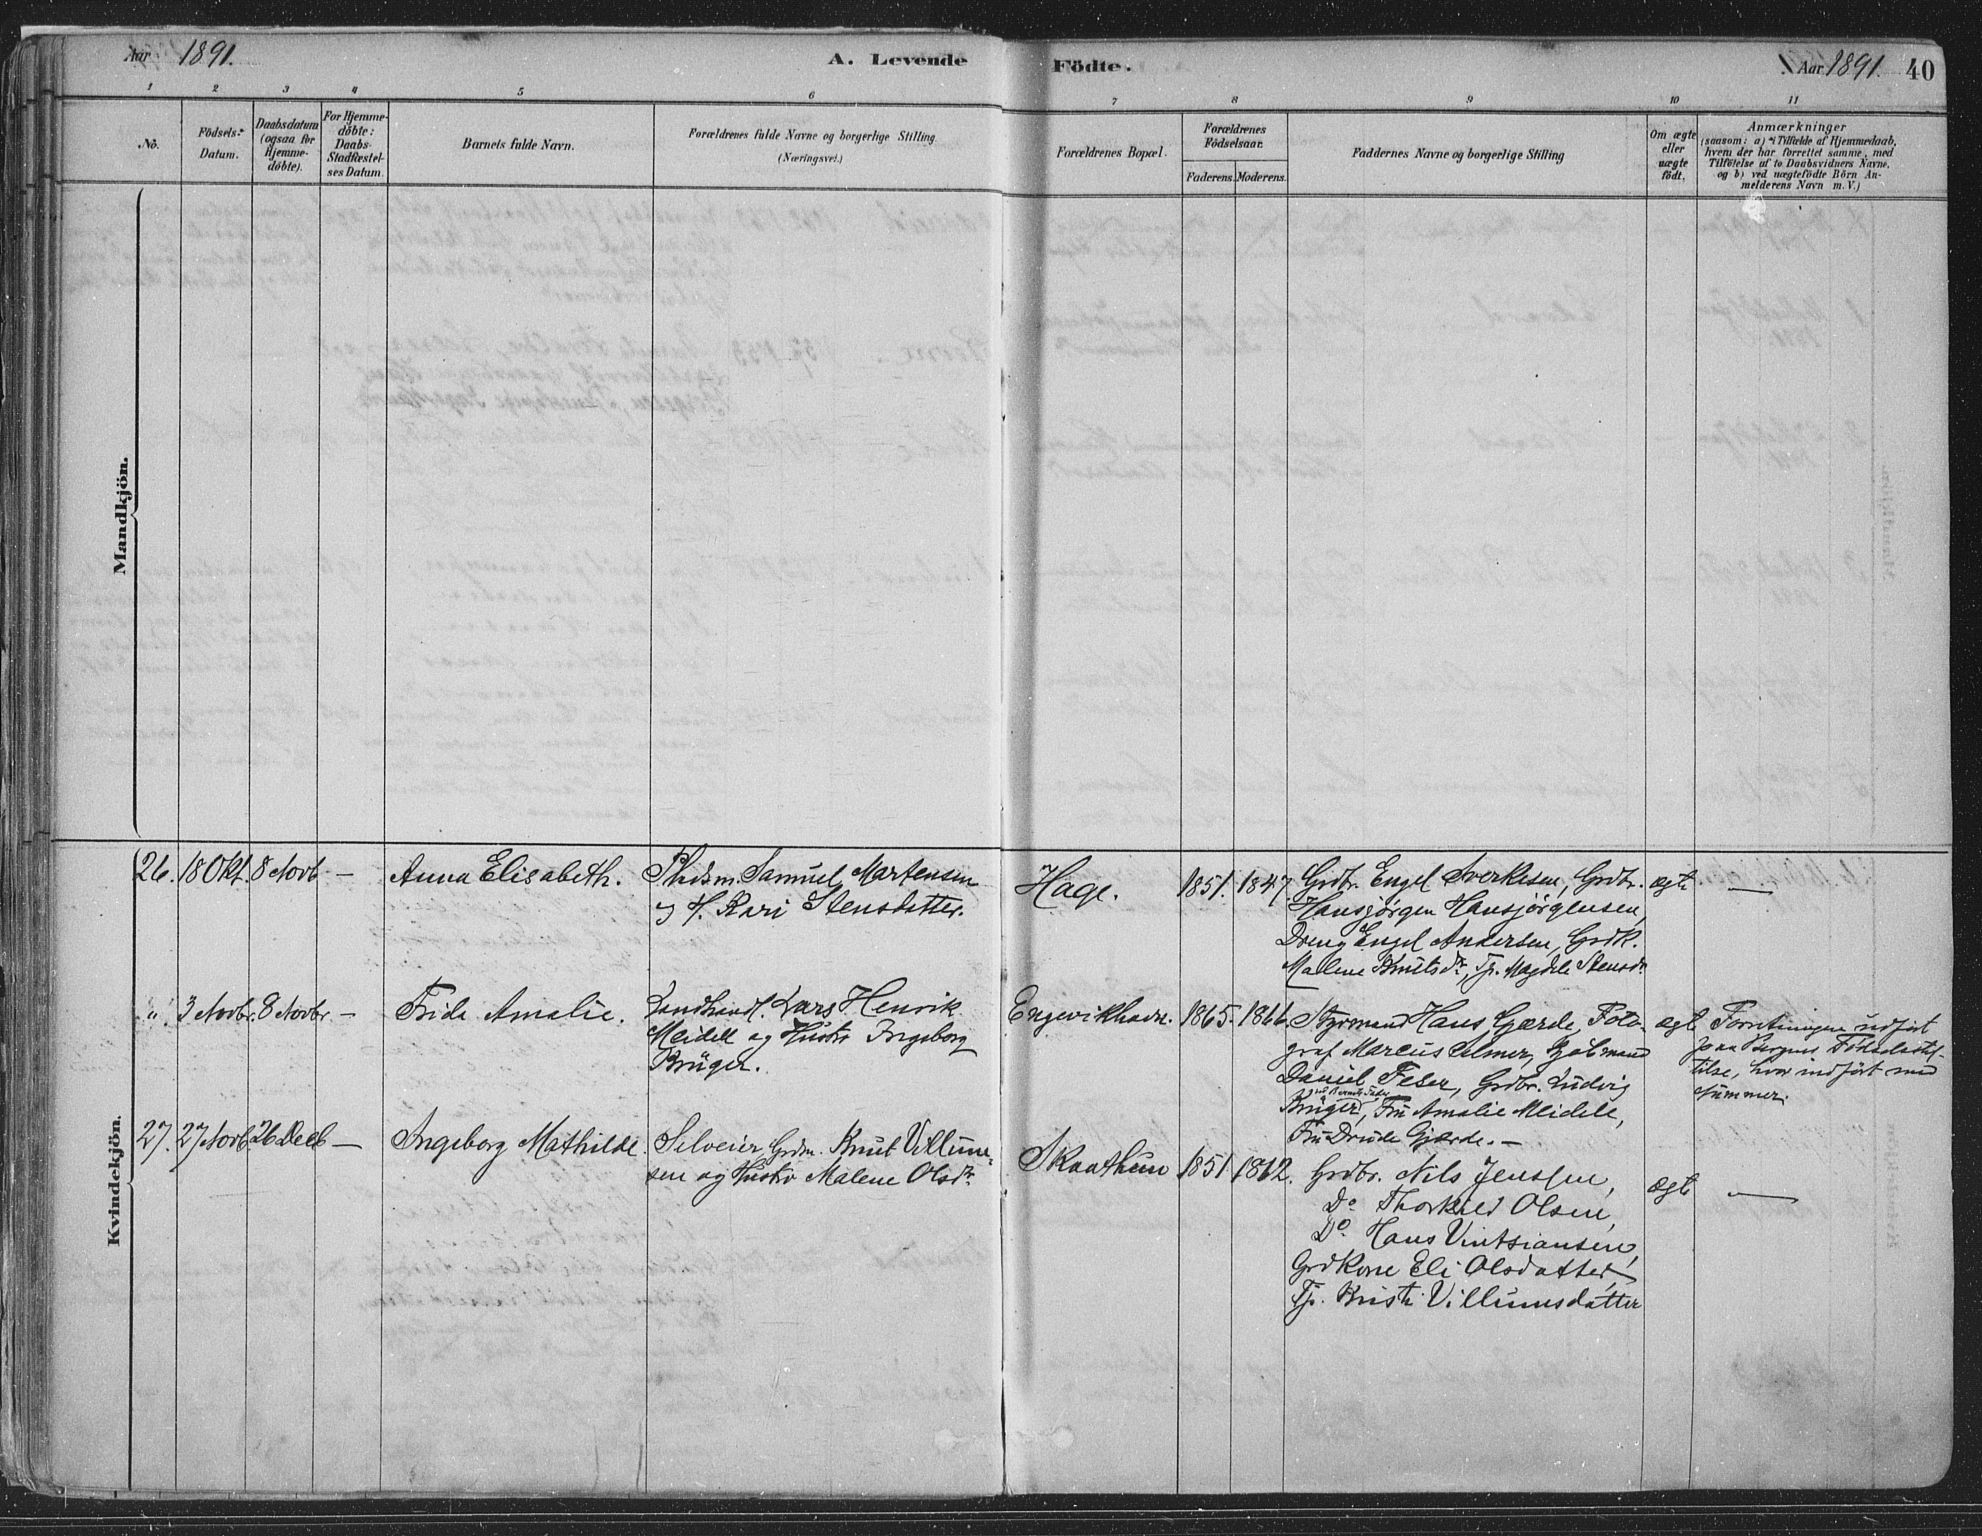 Aar 1891.
A. Levende Födte.
Aar 1891. 40
1 2 3 4 5 6 7 8 9 10 11
No.
Födsels-
Datum.
Daabsdatum
(ogsaa for
Hjemme-
döbte).
For Hjemme-
döbte:
Daabs-
Stadfæstel-
ses Datum.
Barnets fulde Navn.
Forældrenes fulde Navne og borgerlige Stilling
(Næringsvei.)
Forældrenes Bopæl.
Forældrenes
Födselsaar.
Faderens. Moderens.
Faddernes Navne og borgerlige Stilling
Om ægte
eller
uægte
födt.
Anmærkninger
(saasom: a) i Tilfælde af Hjemmedaab,
hvem der har forrettet samme, med
Tilföielse af to Daabsvidners Navne,
og b) ved uægtefödte Börn An-
melderens Navn m. V.)
Mandkjön.
Kvindekjön.
26. 18 Okt. 8 Novb — Anna Elisabeth.
Pladsm. Samuel Martensen
og H. Kari Stensdatter.
Hage. 1851. 1847
Grdbr. Engel Sverkesen, Grdbr.
Hansjørgen Hansjørgensen,
Dreng Engel Andersen, Grdk.
Malene Knutsdr, Tp. Magdele Stensdr
ægte —
". 3 Novbr. 8 Novbr — Frida Amalie.
Landhandl. Lars Henrik
Meidell og Hustro Ingeborg
Brüger.
Engevikhavn. 1865. 1866.
Styrmand Hans Gjærde, Foto-
graf Marcus Selmer, Kjøbmand
Daniel Feser, Grdbr. Ludvig
Brüger, Fru Amalie Meidell,
Fru Drude Gjærde. —
ægte
Forretningen udført
paa Bergens Fødselsstif-
telse, hvor indført med
Nummer.
27. 27 Novb. 26 Decb — Ingeborg Mathilde.
Selveier Grdm. Knut Villum-
sen og Hustro Malene Olsdr.
Skaathun 1851 1862.
Grdbr. Nils Jenssen,
Do Thorkild Olsen,
Do Hans Vintsiansen,
Grdkone Eli Olsdatter,
Tp. Kristi Villumsdatter
ægte —